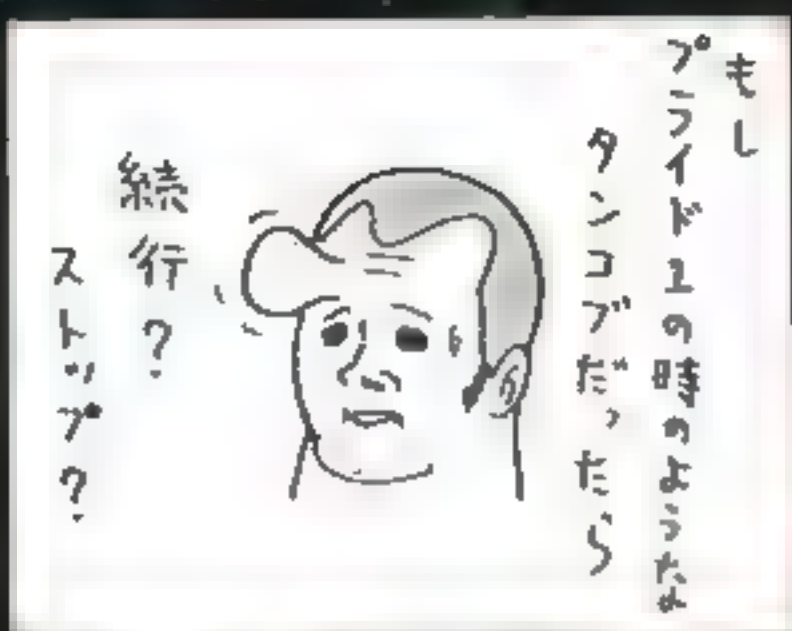 もし
プライド1の時のような
タンコブだったら
続行?
ストップ?